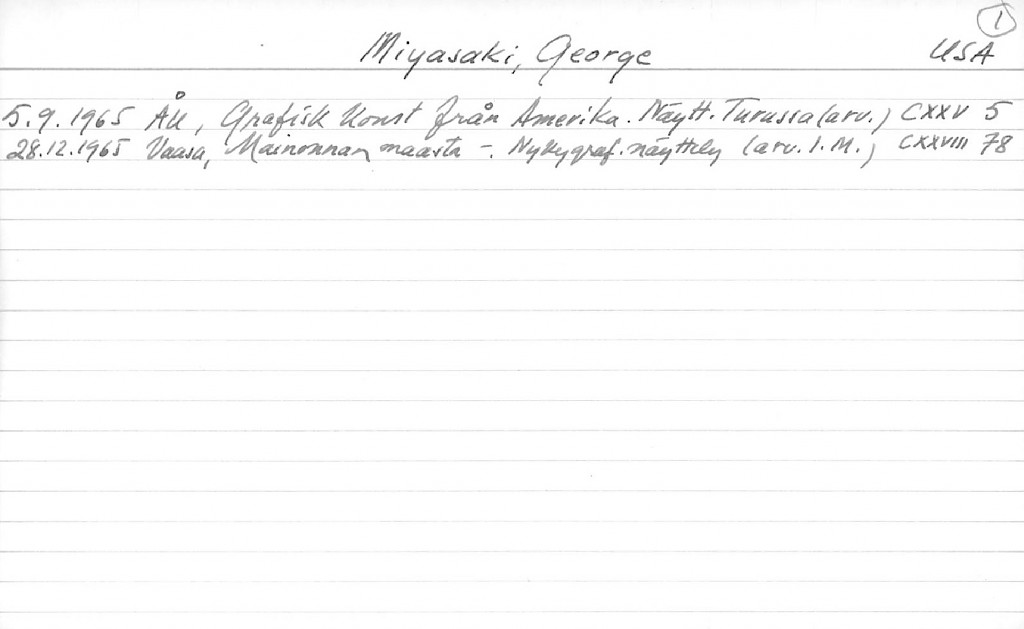 1
Miyasaki, George USA
5.9.1965 ÅU, Grafisk Konst från Amerika. Näytt. Turussa (arv.) CXXV 5
28.12.1965 Vaasa, Mainonnan maasta -. Nykygraf. näyttely (arv. I.M.) CXXVIII 78